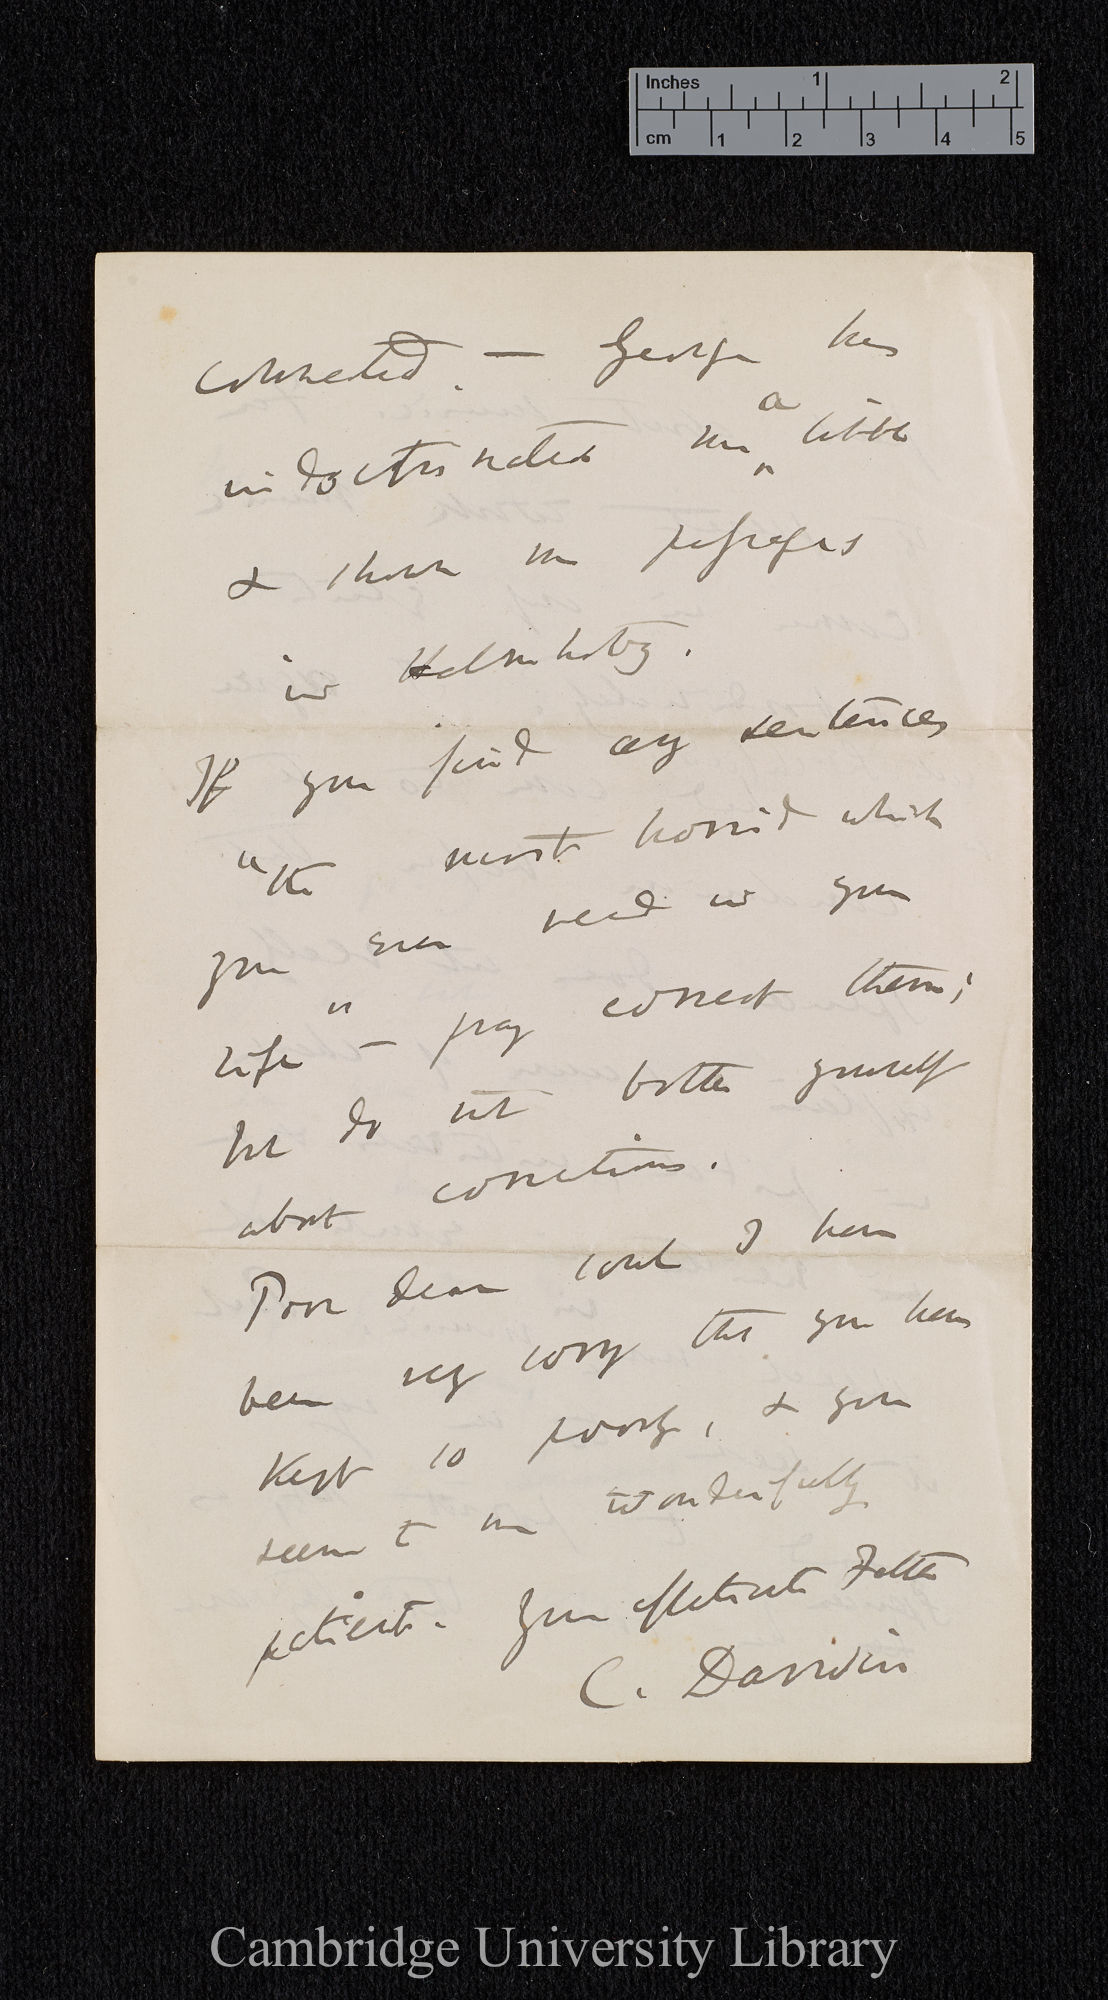 Inches 1 2
cm 1 2 3 4 5
connected. — George has
indoctrinated me a little
& shown me passages
in Helmholtz.
If you find any sentences
"the most horrid which
you ever read in your
life" — pray correct them;
but do not bother yourself
about corrections.
Poor dear soul I have
been very sorry that you have
kept so poorly, & you
seem to me wonderfully
patient. Your affectionate Father
C. Darwin
Cambridge University Library